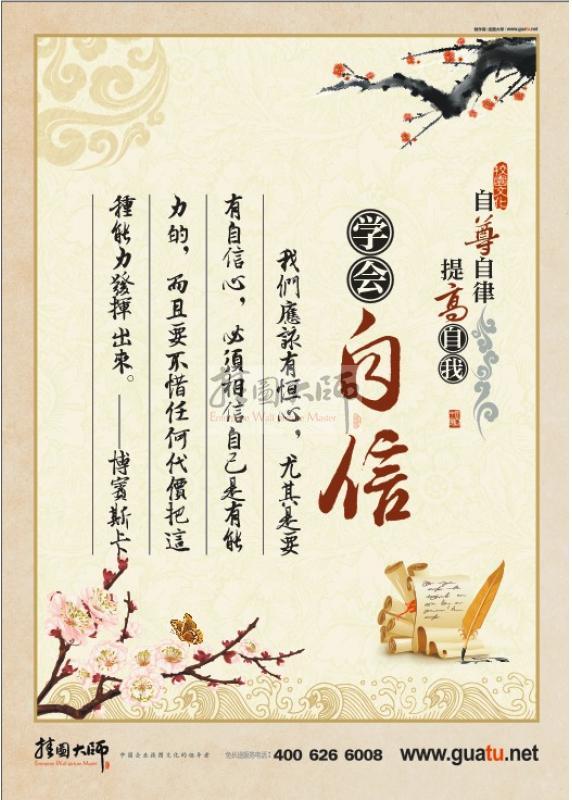 www.guatu.net
校园文化
自尊自律
提高自我
学会
自信
我們應該有恒心，尤其是要
有自信心，必須相信自己是有能
力的，而且要不惜任何代價把這
種能力發揮出來。——博賓斯卡
挂圖大師
Enterprise Wall picture Master
挂圖大師
Enterprise Wall picture Master
中國企业挂图文化的领导者
免长途服务电话：400 626 6008
www.guatu.net